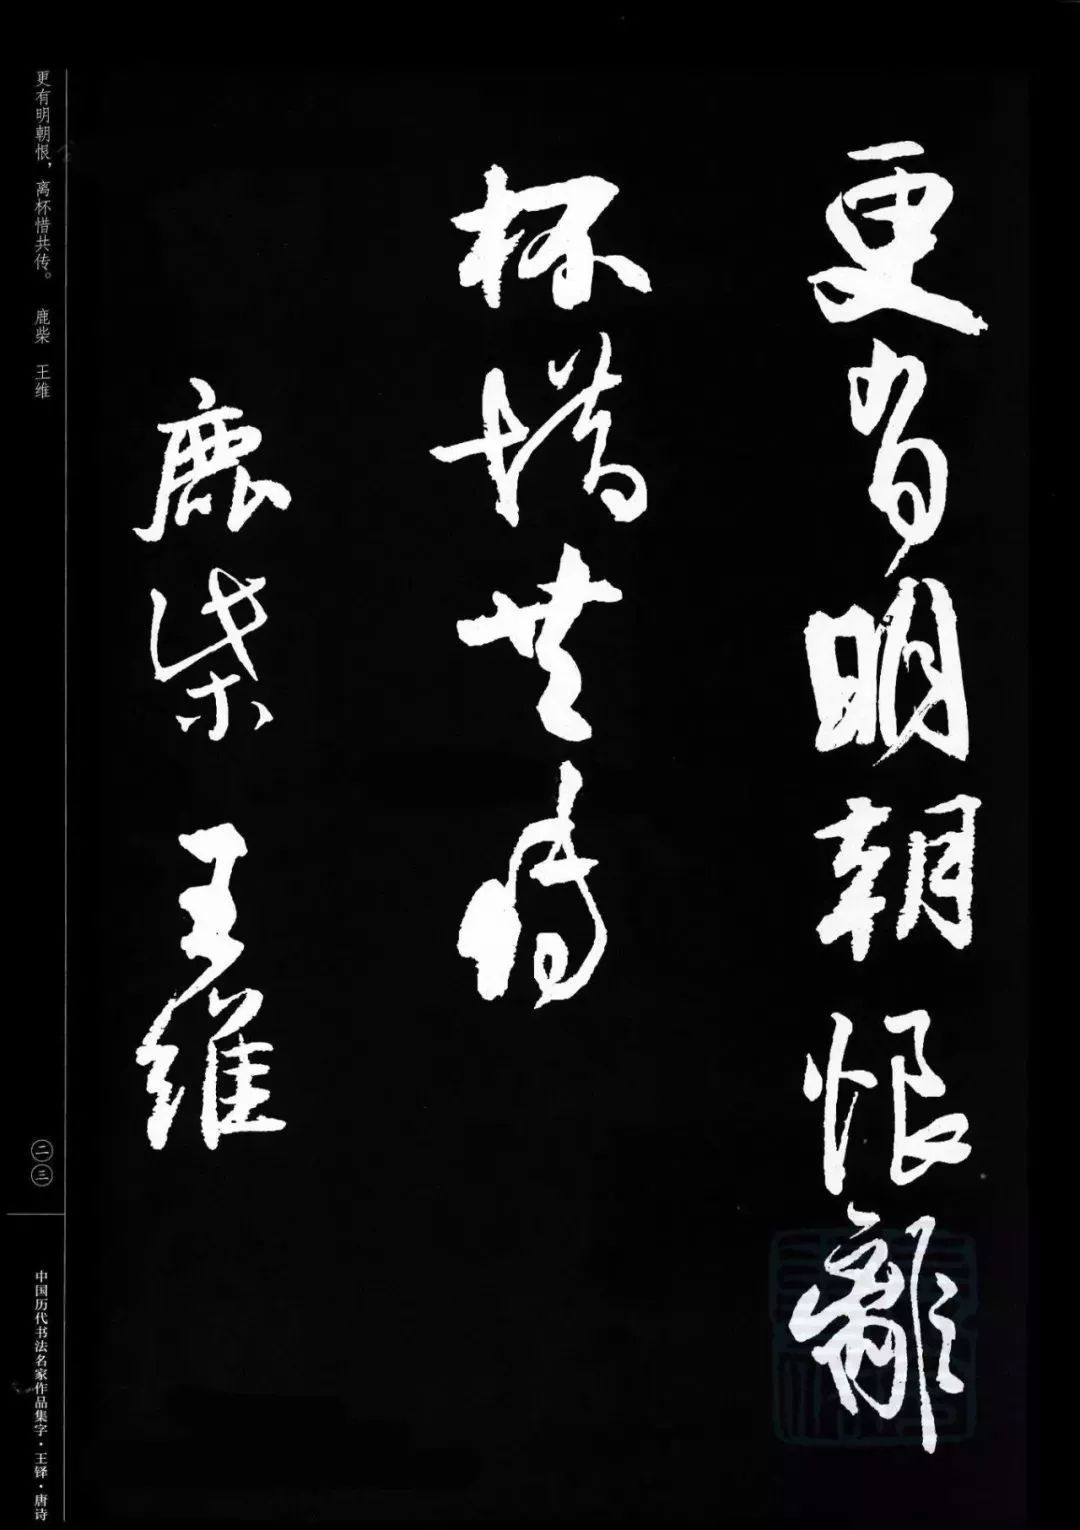 更有明朝恨離
杯惜共傳
鹿柴 王維
更有明朝恨，离杯惜共传。 鹿柴 王维
二三
中国历代书法名家作品集字·王铎·唐诗